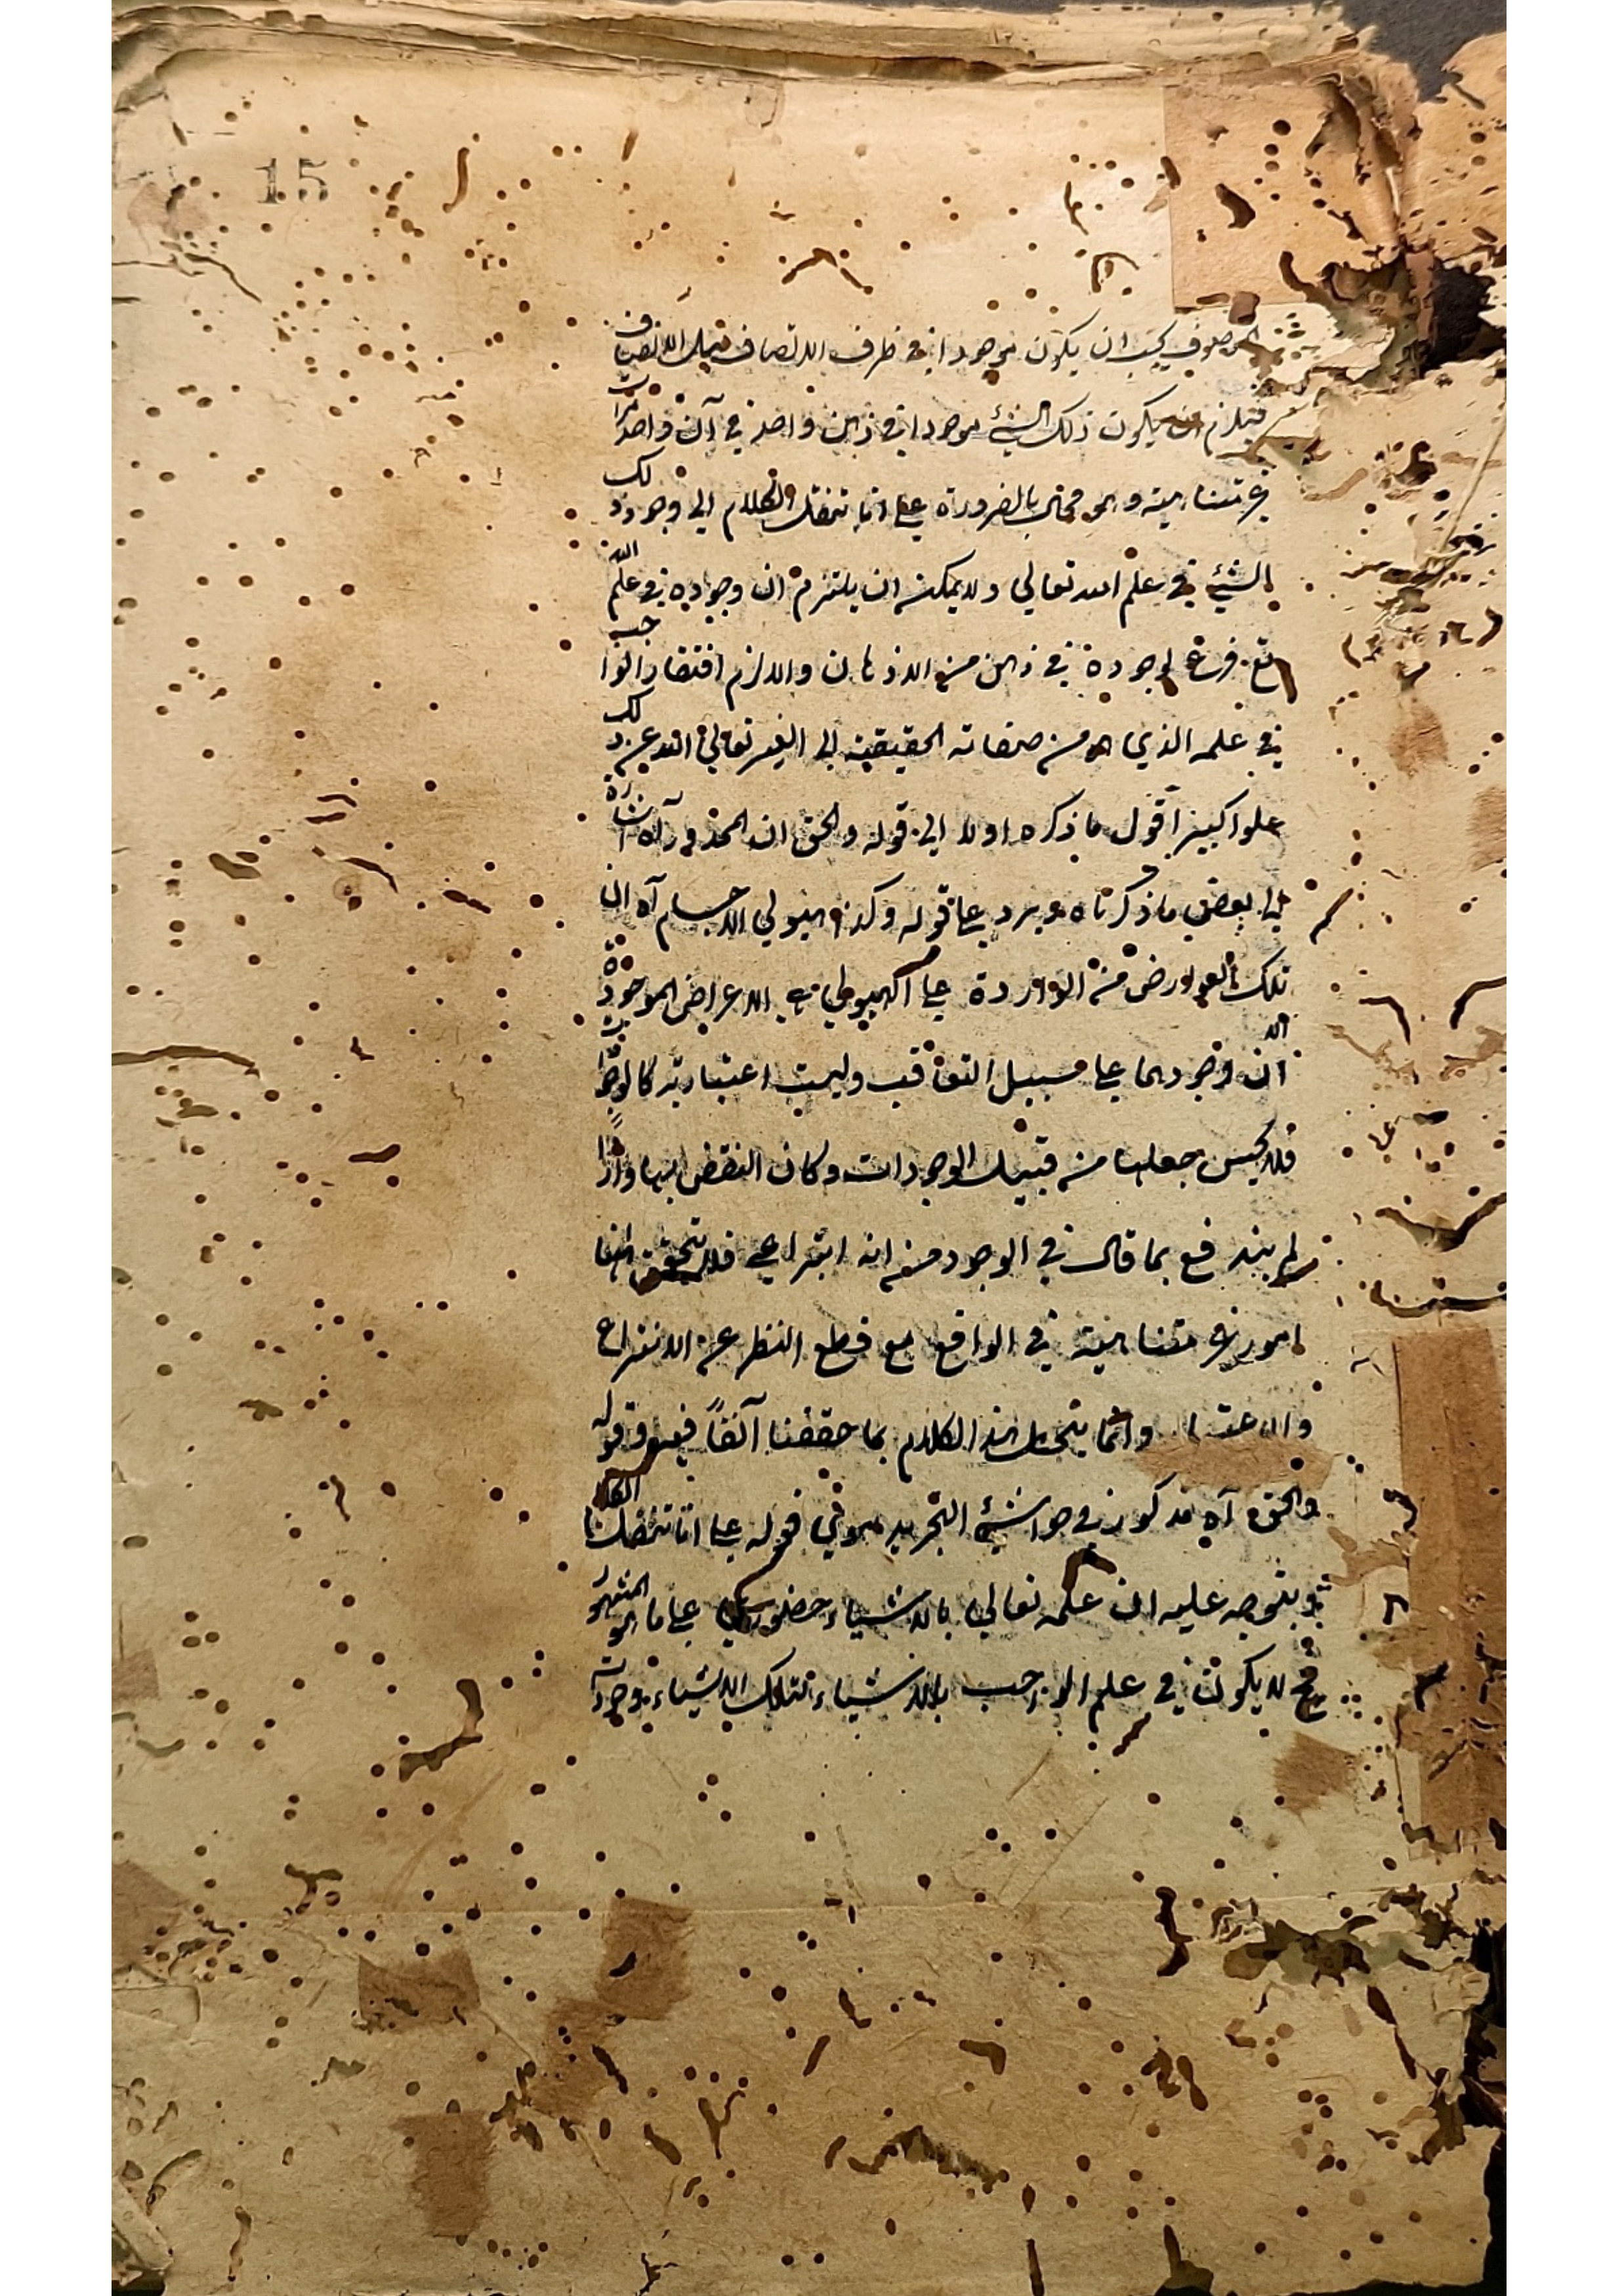 15
الموصوف يجب ان يكون موجودا في ظرف الاتصاف قبل الاتصاف
فيلزم ان يكون ذلك الشئ موجودا في ذهن واحد في آن واحد مرات
غير متناهية وهو محال بالضرورة على انا ننقل الكلام الى وجود ذلك
الشئ في علم الله تعالى ولا يمكنه ان يلتزم ان وجوده في علم الله
تع فرع لوجوده في ذهن من الاذهان والا لزم افتقار الواجب
في علمه الذي هو من صفاته الحقيقية الى الغير تعالى الله عن ذلك
علوا كبيرا أقول ما ذكره اولا الى قوله والحق ان المحذور آه اشارة
الى بعض ما ذكرناه ويرد على قوله وكذا هيولى الاجسام آه ان
تلك العوارض من الواردة على الهيولى هي الاعراض الموجودة
الا ان وجودها على سبيل التعاقب وليست اعتبارية كالوجودات
فلا يحسن جعلها من قبيل الوجودات وكان النقض بها واردا
لم يندفع بما قال في الوجود من انه انتزاعي فلا يتحقق هنا
امور غير متناهية في الواقع مع قطع النظر عن الانتزاع
والاعت وانما ينحل هذا الكلام بما حققنا آنفا قوله
والحق آه مذكور في حواشي التجريد قوله على انا ننقل الكلام
ويتوجه عليه ان علمه تعالى بالاشياء حضوري على ما هو المشهور
فح لا يكون في علم الواجب بالاشياء لتلك الاشياء وجودات